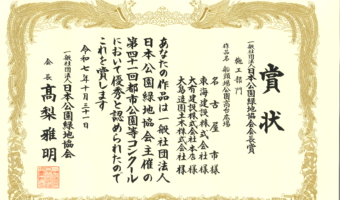 賞状
一般社団法人日本公園緑地協会会長賞
施工部門
作品名 船頭場公園高台広場
名古屋市様
東海建設株式会社様
大有建設株式会社本店様
大島造園土木株式会社様
あなたの作品は一般社団法人
日本公園緑地協会主催の
第四十一回都市公園等コンクール
において優秀と認められたので
これを賞します
令和七年十月三十一日
一般社団法人日本公園緑地協会
会長 髙梨雅明